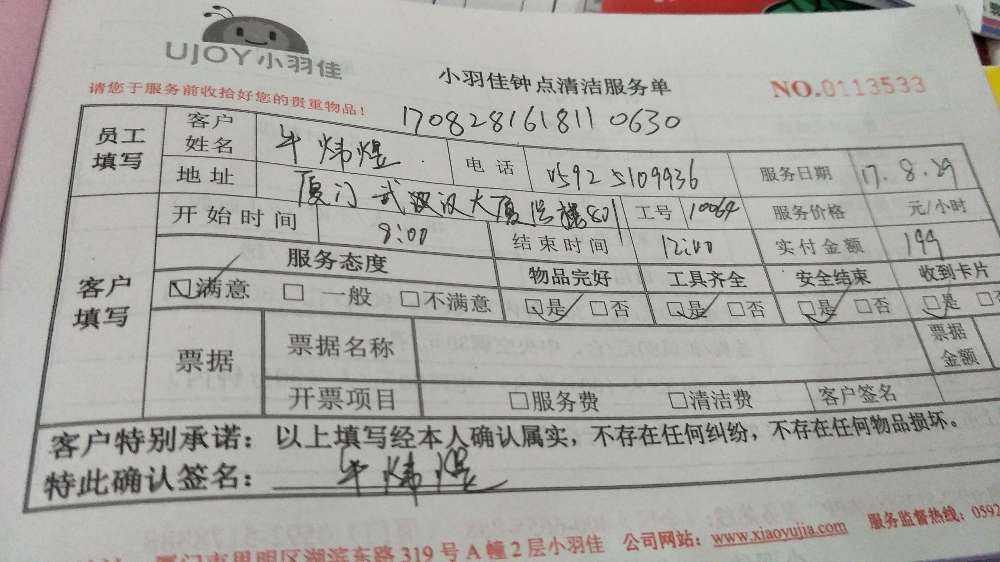 UJOY小羽佳
小羽佳钟点清洁服务单
NO.0113533
请您于服务前收拾好您的贵重物品!
1708281618110630
员工填写
客户姓名 牛炜煜 电话 0592 5109936 服务日期 17.8.29
地址 厦门 武汉大厦 801 工号 10064 服务价格 元/小时
客户填写
开始时间 9:00 结束时间 12:00 实付金额 199
服务态度 物品完好 工具齐全 安全结束 收到卡片
☑满意 □一般 □不满意 ☑是 □否 ☑是 □否 ☑是 □否 ☑是
票据 票据名称 票据金额
开票项目 □服务费 □清洁费 客户签名
客户特别承诺：以上填写经本人确认属实，不存在任何纠纷，不存在任何物品损坏。
特此确认签名：牛炜煜
厦门市思明区湖滨东路319号A幢2层小羽佳 公司网站：www.xiaoyujia.com 服务监督热线：0592